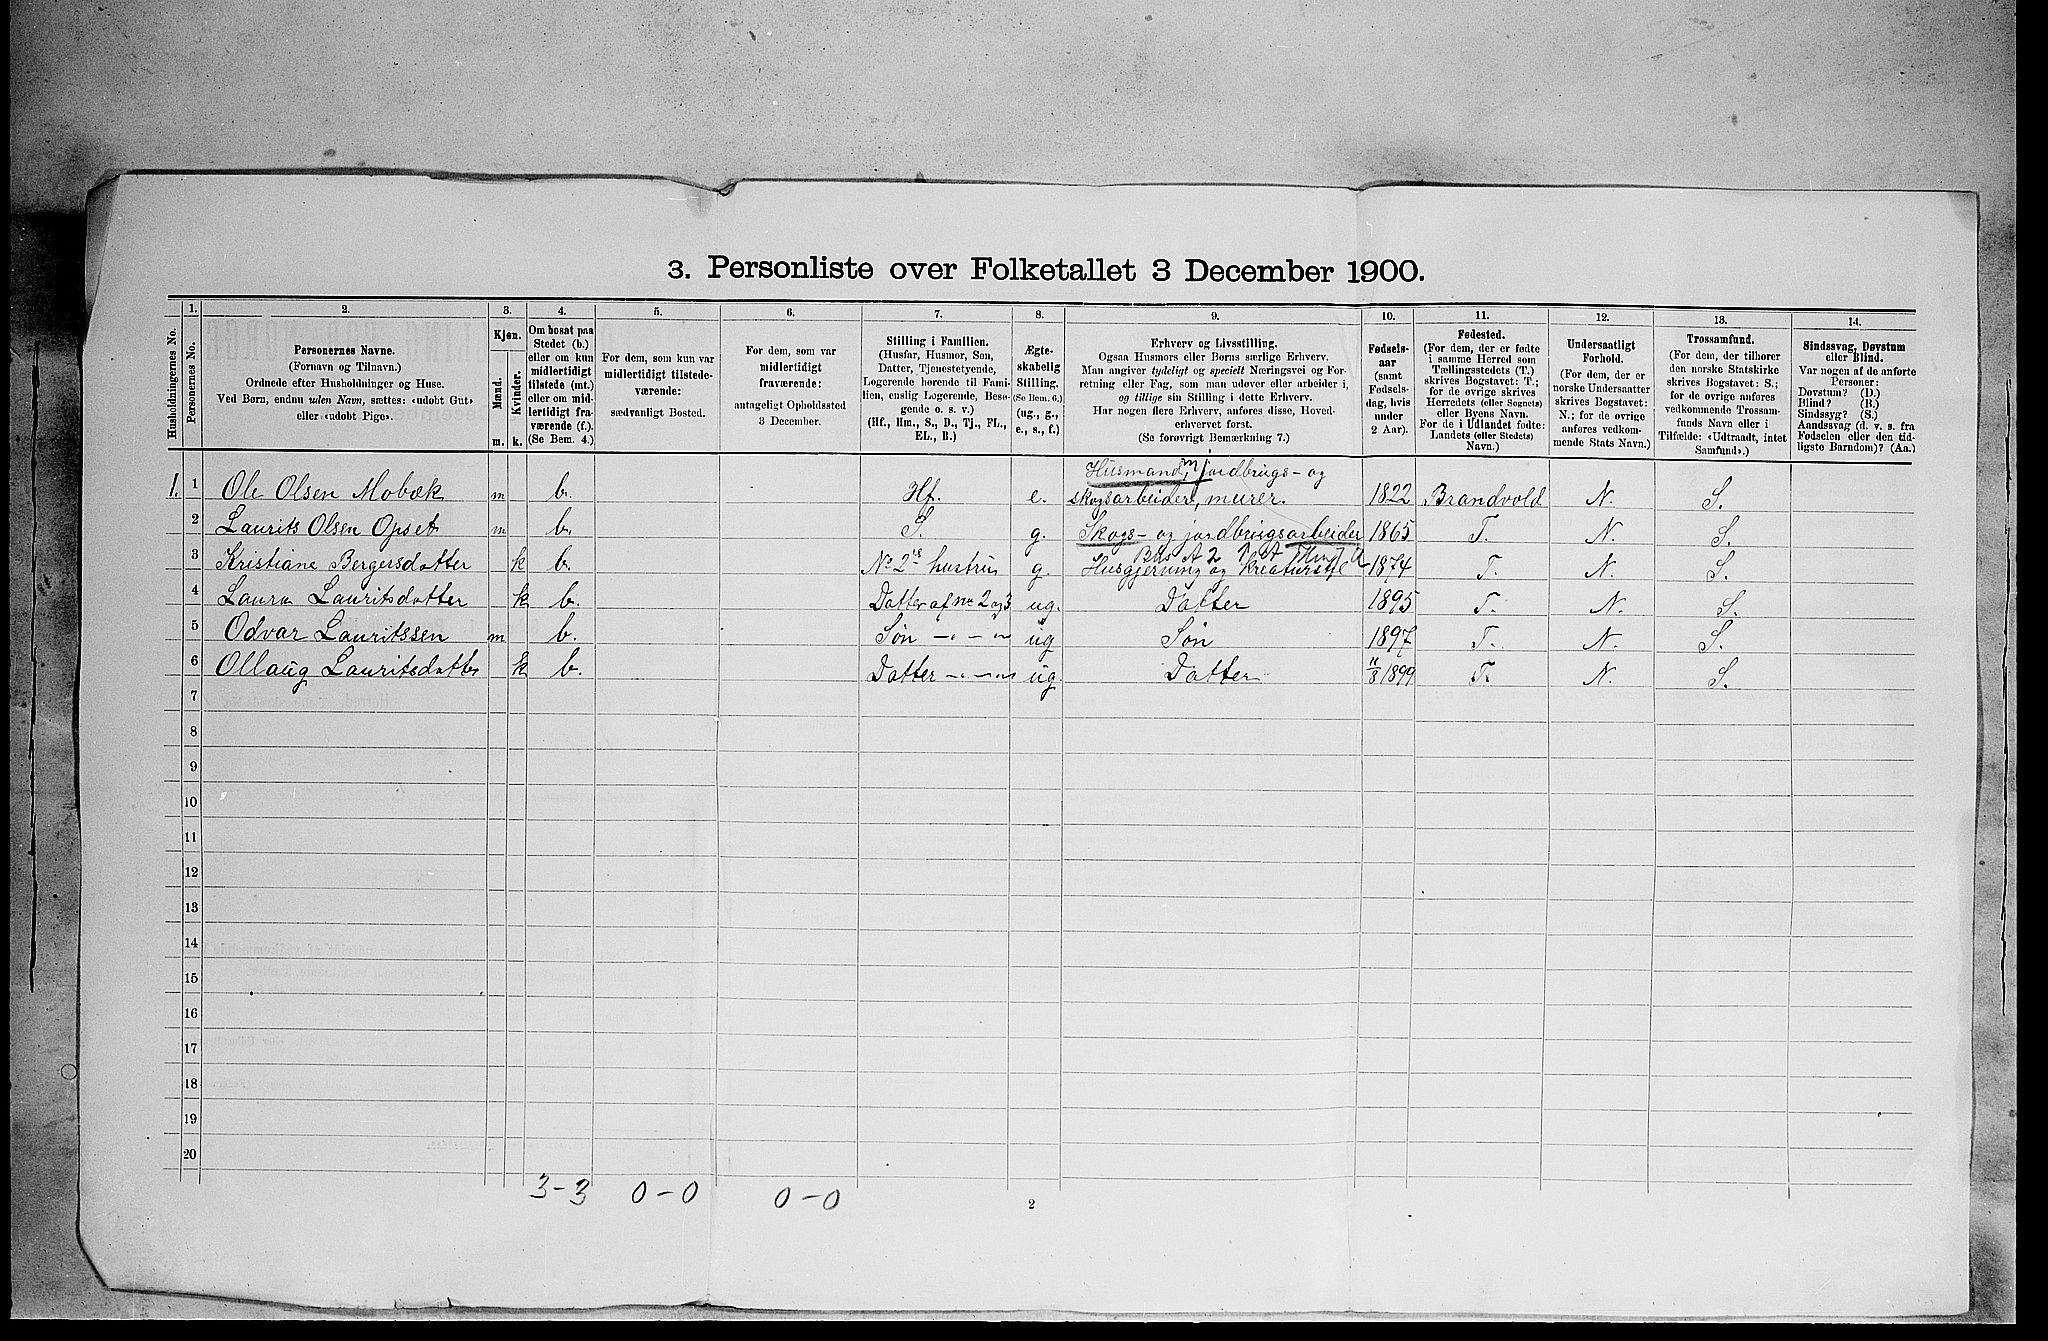 3. Personliste over Folketallet 3 December 1900.
1. 2. 3. 4. 5. 6. 7. 8. 9. 10. 11. 12. 13. 14.
Husholdningernes No.
Personernes No.
Personernes Navne.
(Fornavn og Tilnavn.)
Ordnede efter Husholdninger og Huse.
Ved Børn, endnu uden Navn, sættes: «udobt Gut»
eller «udobt Pige».
Kjøn.
Mænd.
Kvinder.
m. k.
Om bosat paa
Stedet (b.)
eller om kun
midlertidigt
tilstede (mt.)
eller om mid-
lertidigt fra-
værende (f.).
(Se Bem. 4.)
For dem, som kun var
midlertidigt tilstede-
værende:
sædvanligt Bosted.
For dem, som var
midlertidigt
fraværende:
antageligt Opholdssted
3 December.
Stilling i Familien.
(Husfar, Husmor, Søn,
Datter, Tjenestetyende,
Logerende hørende til Fami-
lien, enslig Logerende, Besø-
gende o. s. v.)
(Hf., Hm., S., D., Tj., FL.,
EL., B.)
Ægte-
skabelig
Stilling.
(Se Bem. 6.)
(ug., g.,
e., s., f.)
Erhverv og Livsstilling.
Ogsaa Husmors eller Børns særlige Erhverv.
Man angiver tydeligt og specielt Næringsvei og For-
retning eller Fag, som man udover eller arbeider i,
og tillige sin Stilling i dette Erhverv.
Har nogen flere Erhverv, anføres disse, Hoved-
erhvervet forst.
(Se forøvrigt Bemærkning 7.)
Fødsels-
aar
(samt
Fødsels-
dag, hvis
under
2 Aar).
Fødested.
(For dem, der er fødte
i samme Herred som
Tællingsstedets (T.)
skrives Bogstavet: T.;
for de øvrige skrives
Herredets (eller Sognets)
eller Byens Navn.
For de i Udlandet fødte:
Landets (eller Stedets)
Navn.)
Undersaatligt
Forhold.
(For dem, der er
norske Undersaatter
skrives Bogstavet:
N.; for de øvrige
anføres vedkom-
mende Stats Navn.)
Trossamfund.
(For dem, der tilhører
den norske Statskirke
skrives Bogstavet: S.;
for de øvrige anføres
vedkommende Trossam-
funds Navn eller i
Tilfælde: «Udtraadt, intet
Samfund».)
Sindssvag, Døvstum
eller Blind.
Var nogen af de anførte
Personer:
Døvstum? (D.)
Blind? (B.)
Sindssyg? (S.)
Aandssvag (d. v. s. fra
Fødselen eller den tid-
ligste Barndom)? (Aa.)
Husmand, m jordbrugs- og
1. 1 Ole Olsen Mobæk m b. Hf. e. skogsarbeider, murer. 1822 Brandvold N. S.
2 Laurits Olsen Opset m b. S. g. Skogs- og jordbrugsarbeider 1865 T. N. S.
3 Kristiane Bergersdatter k b. No 2's hustru g. Husgjerning og kreaturstel 1874 T. N. S.
4 Laura Lauritsdatter k b. Datter af no 2 og 3 ug. Datter 1895 T. N. S.
5 Odvar Lauritssen m b. Søn -„- -„- ug Søn 1897 T. N. S.
6 Ollaug Lauritsdatter k b. Datter -„- -„- ug. Datter 11/8 1899 T. N. S.
7
8
9
10
11
12
13
14
15
16
17
18
19
20
3-3 0-0 0-0
2